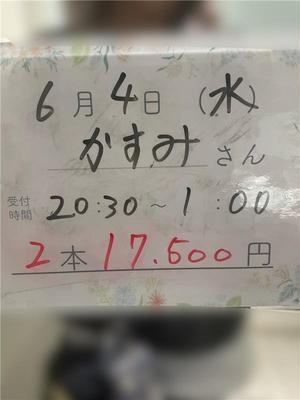 6月4日(水)
かすみさん
受付時間 20:30~1:00
2本17.500円